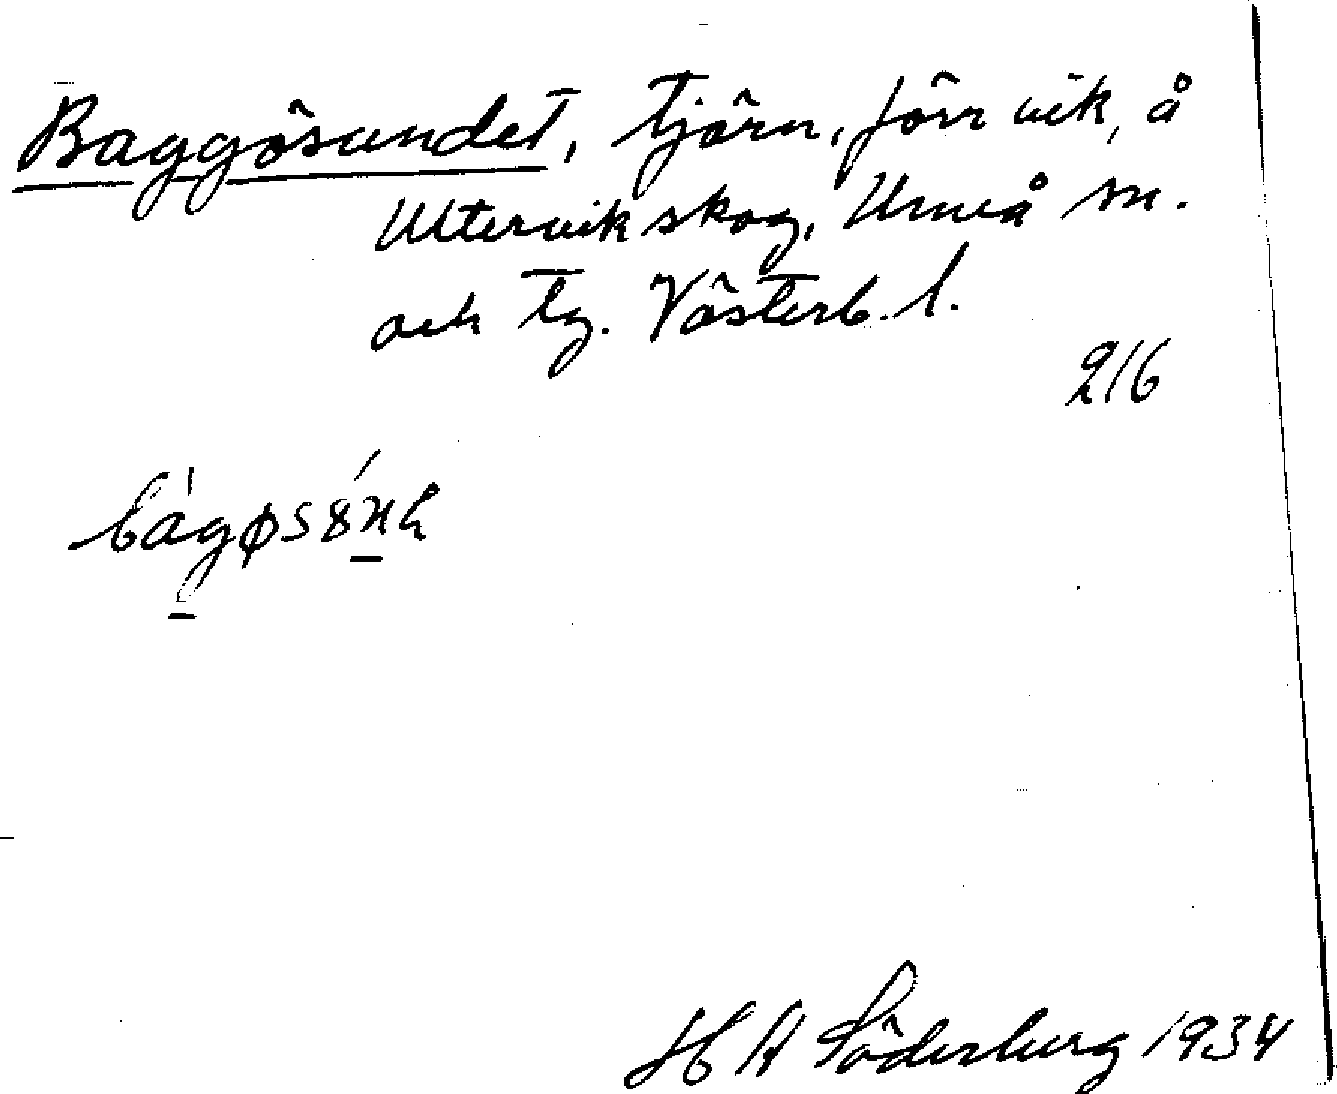 Baggösundet, tjärn, förr vik, å
Uttervik skog, Umeå sn.
och tg. Västerb. l.
216
H A Söderberg 1934